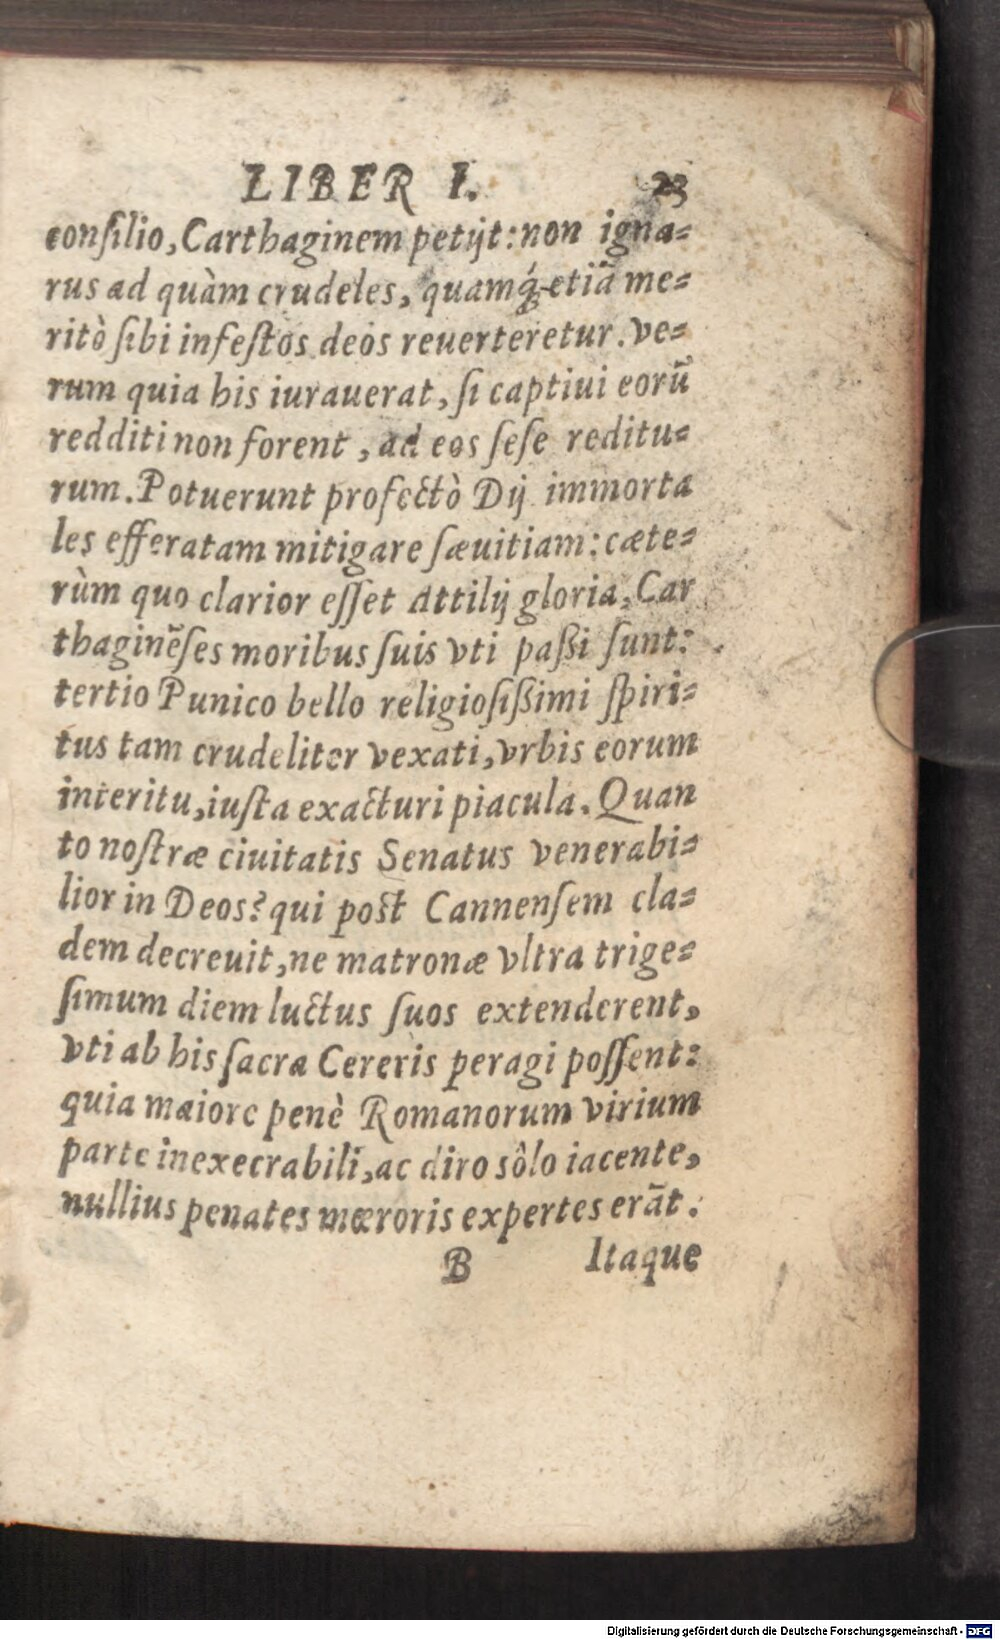 LIBER I. 23
conſilio, Carthaginem petijt: non igna-
rus ad quàm crudeles, quamq́; etiã me-
ritò ſibi infeſtos deos reuerteretur. ve-
rum quia his iurauerat, ſi captiui eorũ
redditi non forent, ad eos ſeſe reditu-
rum. Potuerunt profectò Dij immorta
les efferatam mitigare ſæuitiam: cæte-
rùm quo clarior eſſet Attilij gloria, Car
thaginẽſes moribus ſuis vti paßi ſunt:
tertio Punico bello religioſißimi ſpiri-
tus tam crudeliter vexati, vrbis eorum
interitu, iuſta exacturi piacula. Quan
to noſtræ ciuitatis Senatus venerabi-
lior in Deos? qui poſt Cannenſem cla-
dem decreuit, ne matronæ vltra trige-
ſimum diem luctus ſuos extenderent,
vti ab his ſacra Cereris peragi poſſent:
quia maiore penè Romanorum virium
parte in execrabili, ac diro sôlo iacente,
nullius penates mœroris expertes erãt.
B Itaque
Digitalisierung gefördert durch die Deutsche Forschungsgemeinschaft - DFG